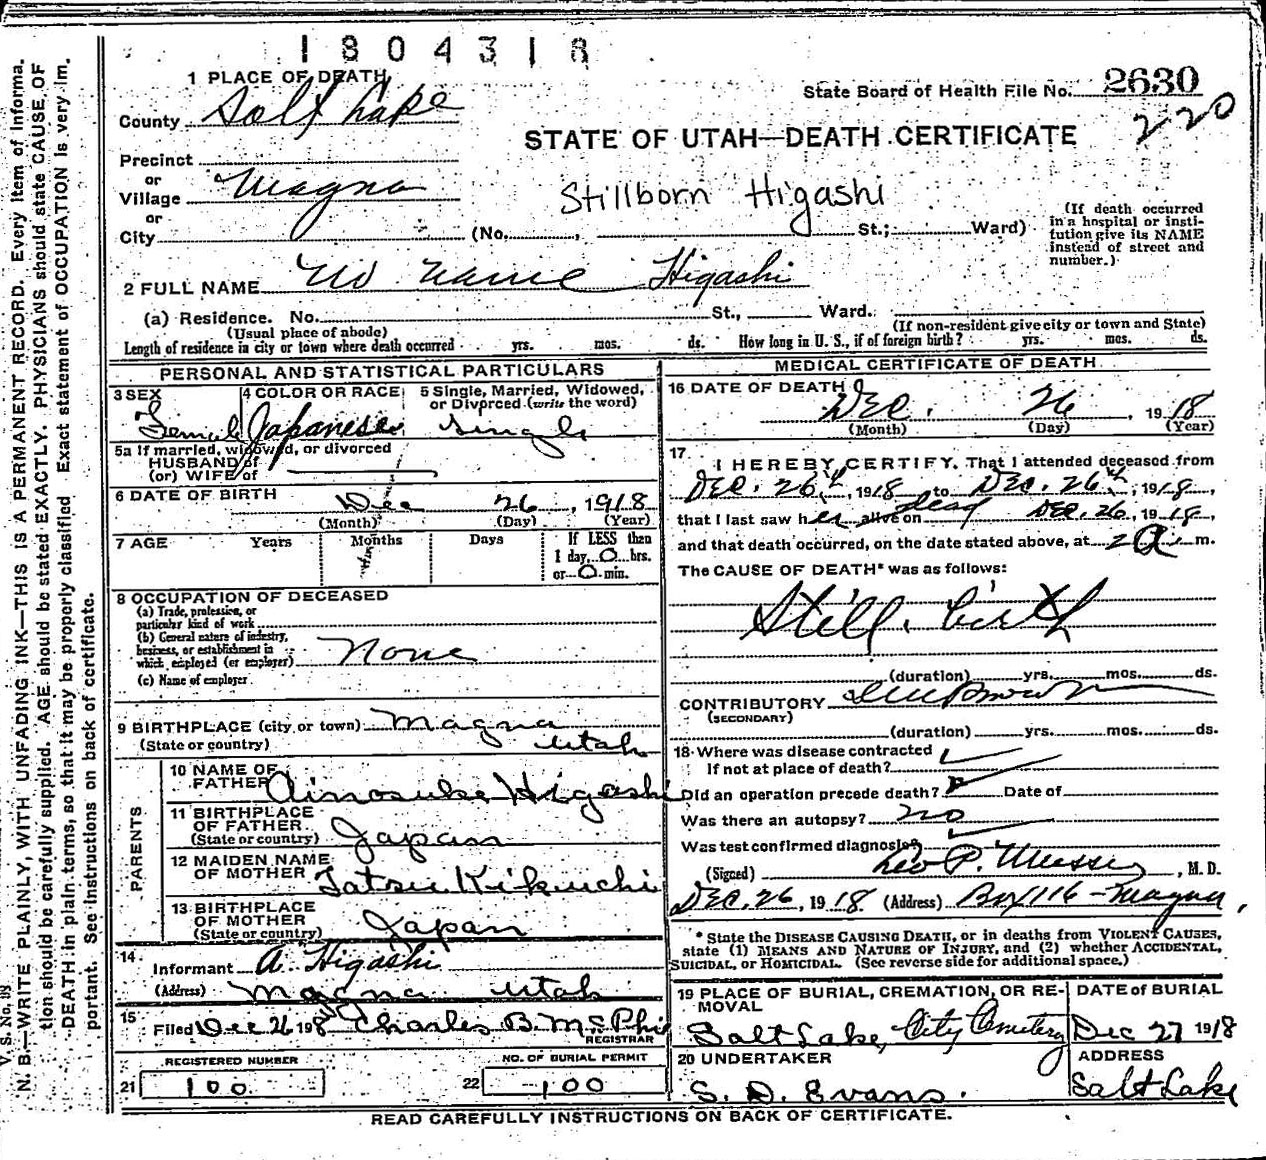 1804318
1 PLACE OF DEATH
State Board of Health File No. 2630
220
County Salt Lake
STATE OF UTAH—DEATH CERTIFICATE
Precinct
or
Village Magna
Stillborn Higashi
or
City (No. , St.; Ward)
(If death occurred in a hospital or insti-
tution give its NAME instead of street and number.)
2 FULL NAME No name Higashi
(a) Residence. No. St., Ward.
(Usual place of abode) (If non-resident give city or town and State)
Length of residence in city or town where death occurred yrs. mos. ds. How long in U. S., if of foreign birth? yrs. mos. ds.
PERSONAL AND STATISTICAL PARTICULARS
3 SEX 4 COLOR OR RACE 5 Single, Married, Widowed,
or Divorced (write the word)
Female Japanese Single
5a If married, widowed, or divorced
HUSBAND of
(or) WIFE of
6 DATE OF BIRTH Dec 26, 1918
(Month) (Day) (Year)
7 AGE Years Months Days If LESS than
1 day, 0 hrs.
or 0 min.
8 OCCUPATION OF DECEASED
(a) Trade, profession, or
particular kind of work
(b) General nature of industry,
business, or establishment in
which employed (or employer) None
(c) Name of employer
9 BIRTHPLACE (city or town) Magna
(State or country) Utah
PARENTS
10 NAME OF
FATHER Ainosuke Higashi
11 BIRTHPLACE
OF FATHER
(State or country) Japan
12 MAIDEN NAME
OF MOTHER Tatsu Kikuchi
13 BIRTHPLACE
OF MOTHER
(State or country) Japan
14
Informant A. Higashi
(Address) Magna Utah
15
Filed Dec 26 1918 Charles B. McPhi
REGISTRAR
REGISTERED NUMBER NO. OF BURIAL PERMIT
21 100 22 100
MEDICAL CERTIFICATE OF DEATH
16 DATE OF DEATH Dec. 26, 1918
(Month) (Day) (Year)
17
I HEREBY CERTIFY, That I attended deceased from
Dec. 26th, 1918, to Dec. 26th, 1918,
that I last saw her alive on dead Dec. 26, 1918,
and that death occurred, on the date stated above, at 2 a. m.
The CAUSE OF DEATH* was as follows:
Still birth
(duration) yrs. mos. ds.
CONTRIBUTORY Unknown
(SECONDARY)
(duration) yrs. mos. ds.
18 Where was disease contracted
If not at place of death?
Did an operation precede death? Date of
Was there an autopsy? no
Was test confirmed diagnosis?
(Signed) Leo P. , M. D.
Dec. 26, 1918 (Address) Box 116 - Magna,
* State the DISEASE CAUSING DEATH, or in deaths from VIOLENT CAUSES,
state (1) MEANS AND NATURE OF INJURY, and (2) whether ACCIDENTAL,
SUICIDAL, or HOMICIDAL. (See reverse side for additional space.)
19 PLACE OF BURIAL, CREMATION, OR RE-
MOVAL
DATE of BURIAL
Salt Lake, City Cemetery Dec 27 1918
20 UNDERTAKER ADDRESS
S. D. Evans. Salt Lake
READ CAREFULLY INSTRUCTIONS ON BACK OF CERTIFICATE.
V. S. No.
N. B.—WRITE PLAINLY, WITH UNFADING INK—THIS IS A PERMANENT RECORD. Every item of informa-
tion should be carefully supplied. AGE should be stated EXACTLY. PHYSICIANS should state CAUSE OF
DEATH in plain terms, so that it may be properly classified. Exact statement of OCCUPATION is very im-
portant. See instructions on back of certificate.